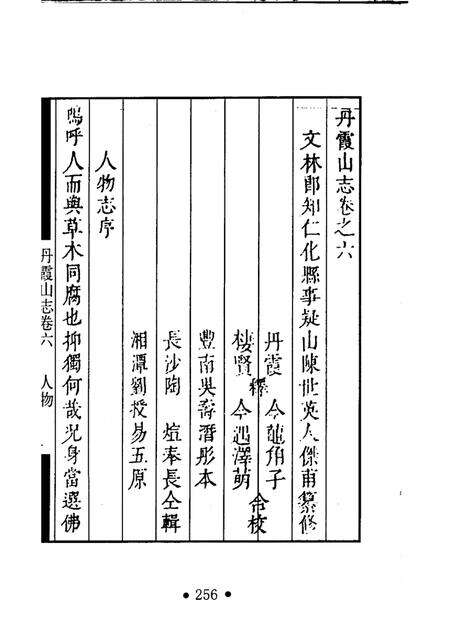 丹霞山志卷之六
文林郎知仁化縣事疑山陳世英人傑甫纂修
丹霞 今龍角子
釋
棲賢 今遇澤萌
合校
豐南吳壽潛彤本
長沙陶煊奉長仝輯
湘潭劉授易五原
人物志序
嗚呼人而與草木同腐也抑獨何哉况身當選佛
丹霞山志卷六 人物
• 256 •